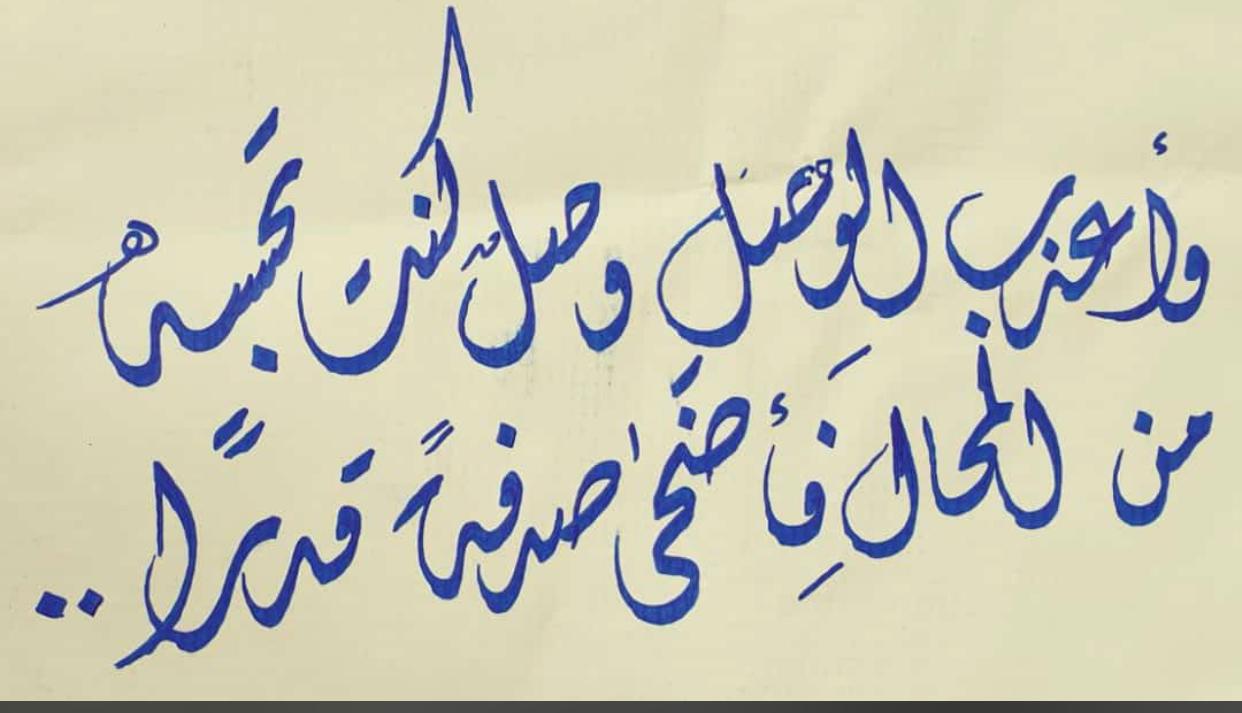 وأعذب الوصل وصلٌ كنت تَحسبهُ
من المحالِ فأضحَى صدفةً قدَرًا..